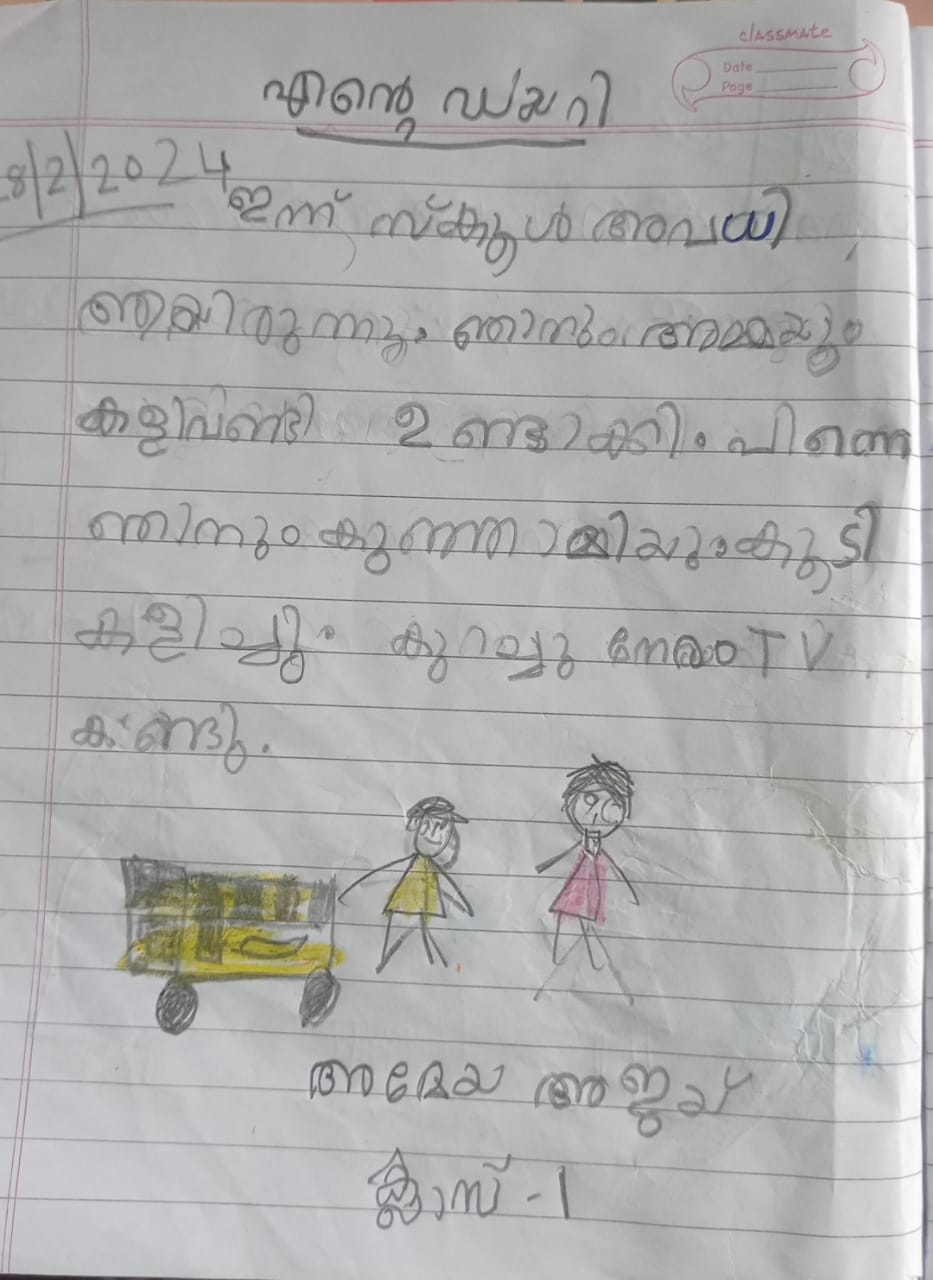 classmate
Date
Page
എന്റെ ഡയറി
8/2/2024
ഇന്ന് സ്കൂൾ അവധി
ആയിരുന്നു. ഞാനും അമ്മയും
കളിവണ്ടി ഉണ്ടാക്കി. പിന്നെ
ഞാനും കുഞ്ഞാറ്റിയും കൂടി
കളിച്ചു. കുറച്ചു നേരം TV
കണ്ടു.
അമേയ അജയ്
ക്ലാസ് - 1